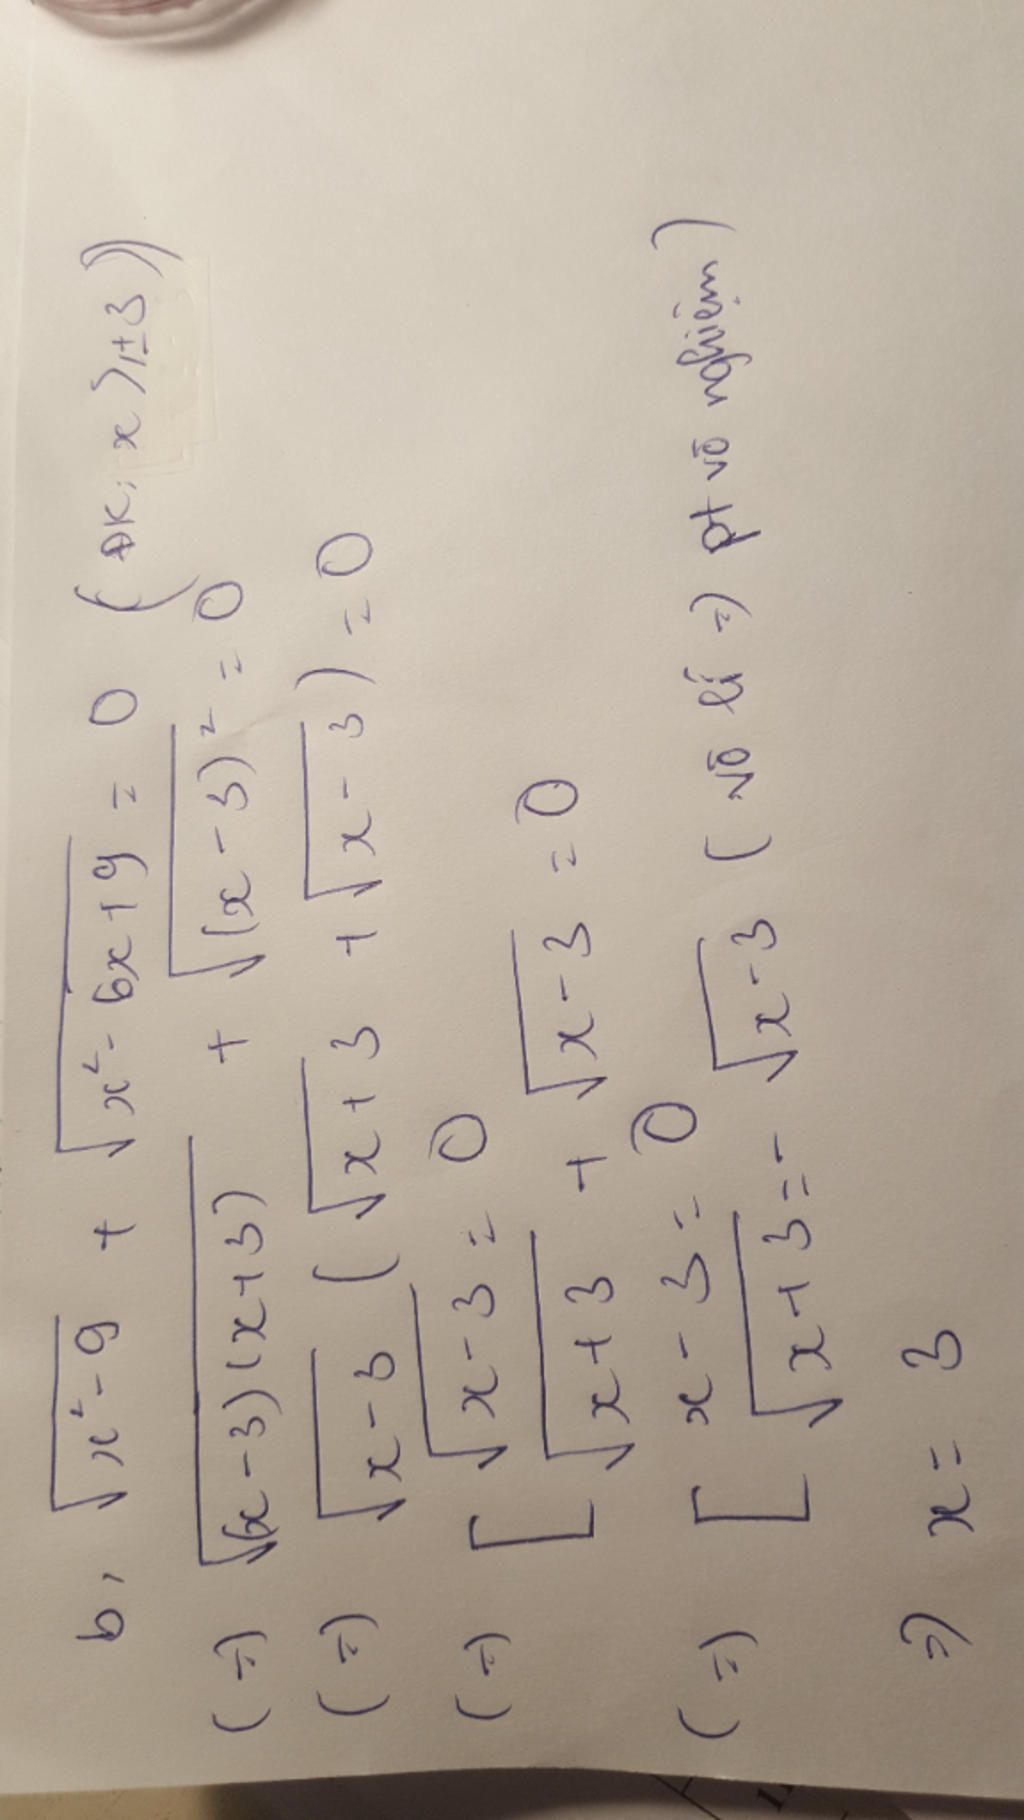 b, √(x²-9) + √(x²-6x+9) = 0 (ĐK: x ≥ ±3)
(=) √((x-3)(x+3)) + √((x-3)²) = 0
(=) √(x-3) (√(x+3) + √(x-3)) = 0
(=) [ √(x-3) = 0
√(x+3) + √(x-3) = 0
(=) [ x-3 = 0
√(x+3) = -√(x-3) (vô lí =) pt vô nghiệm)
=) x = 3